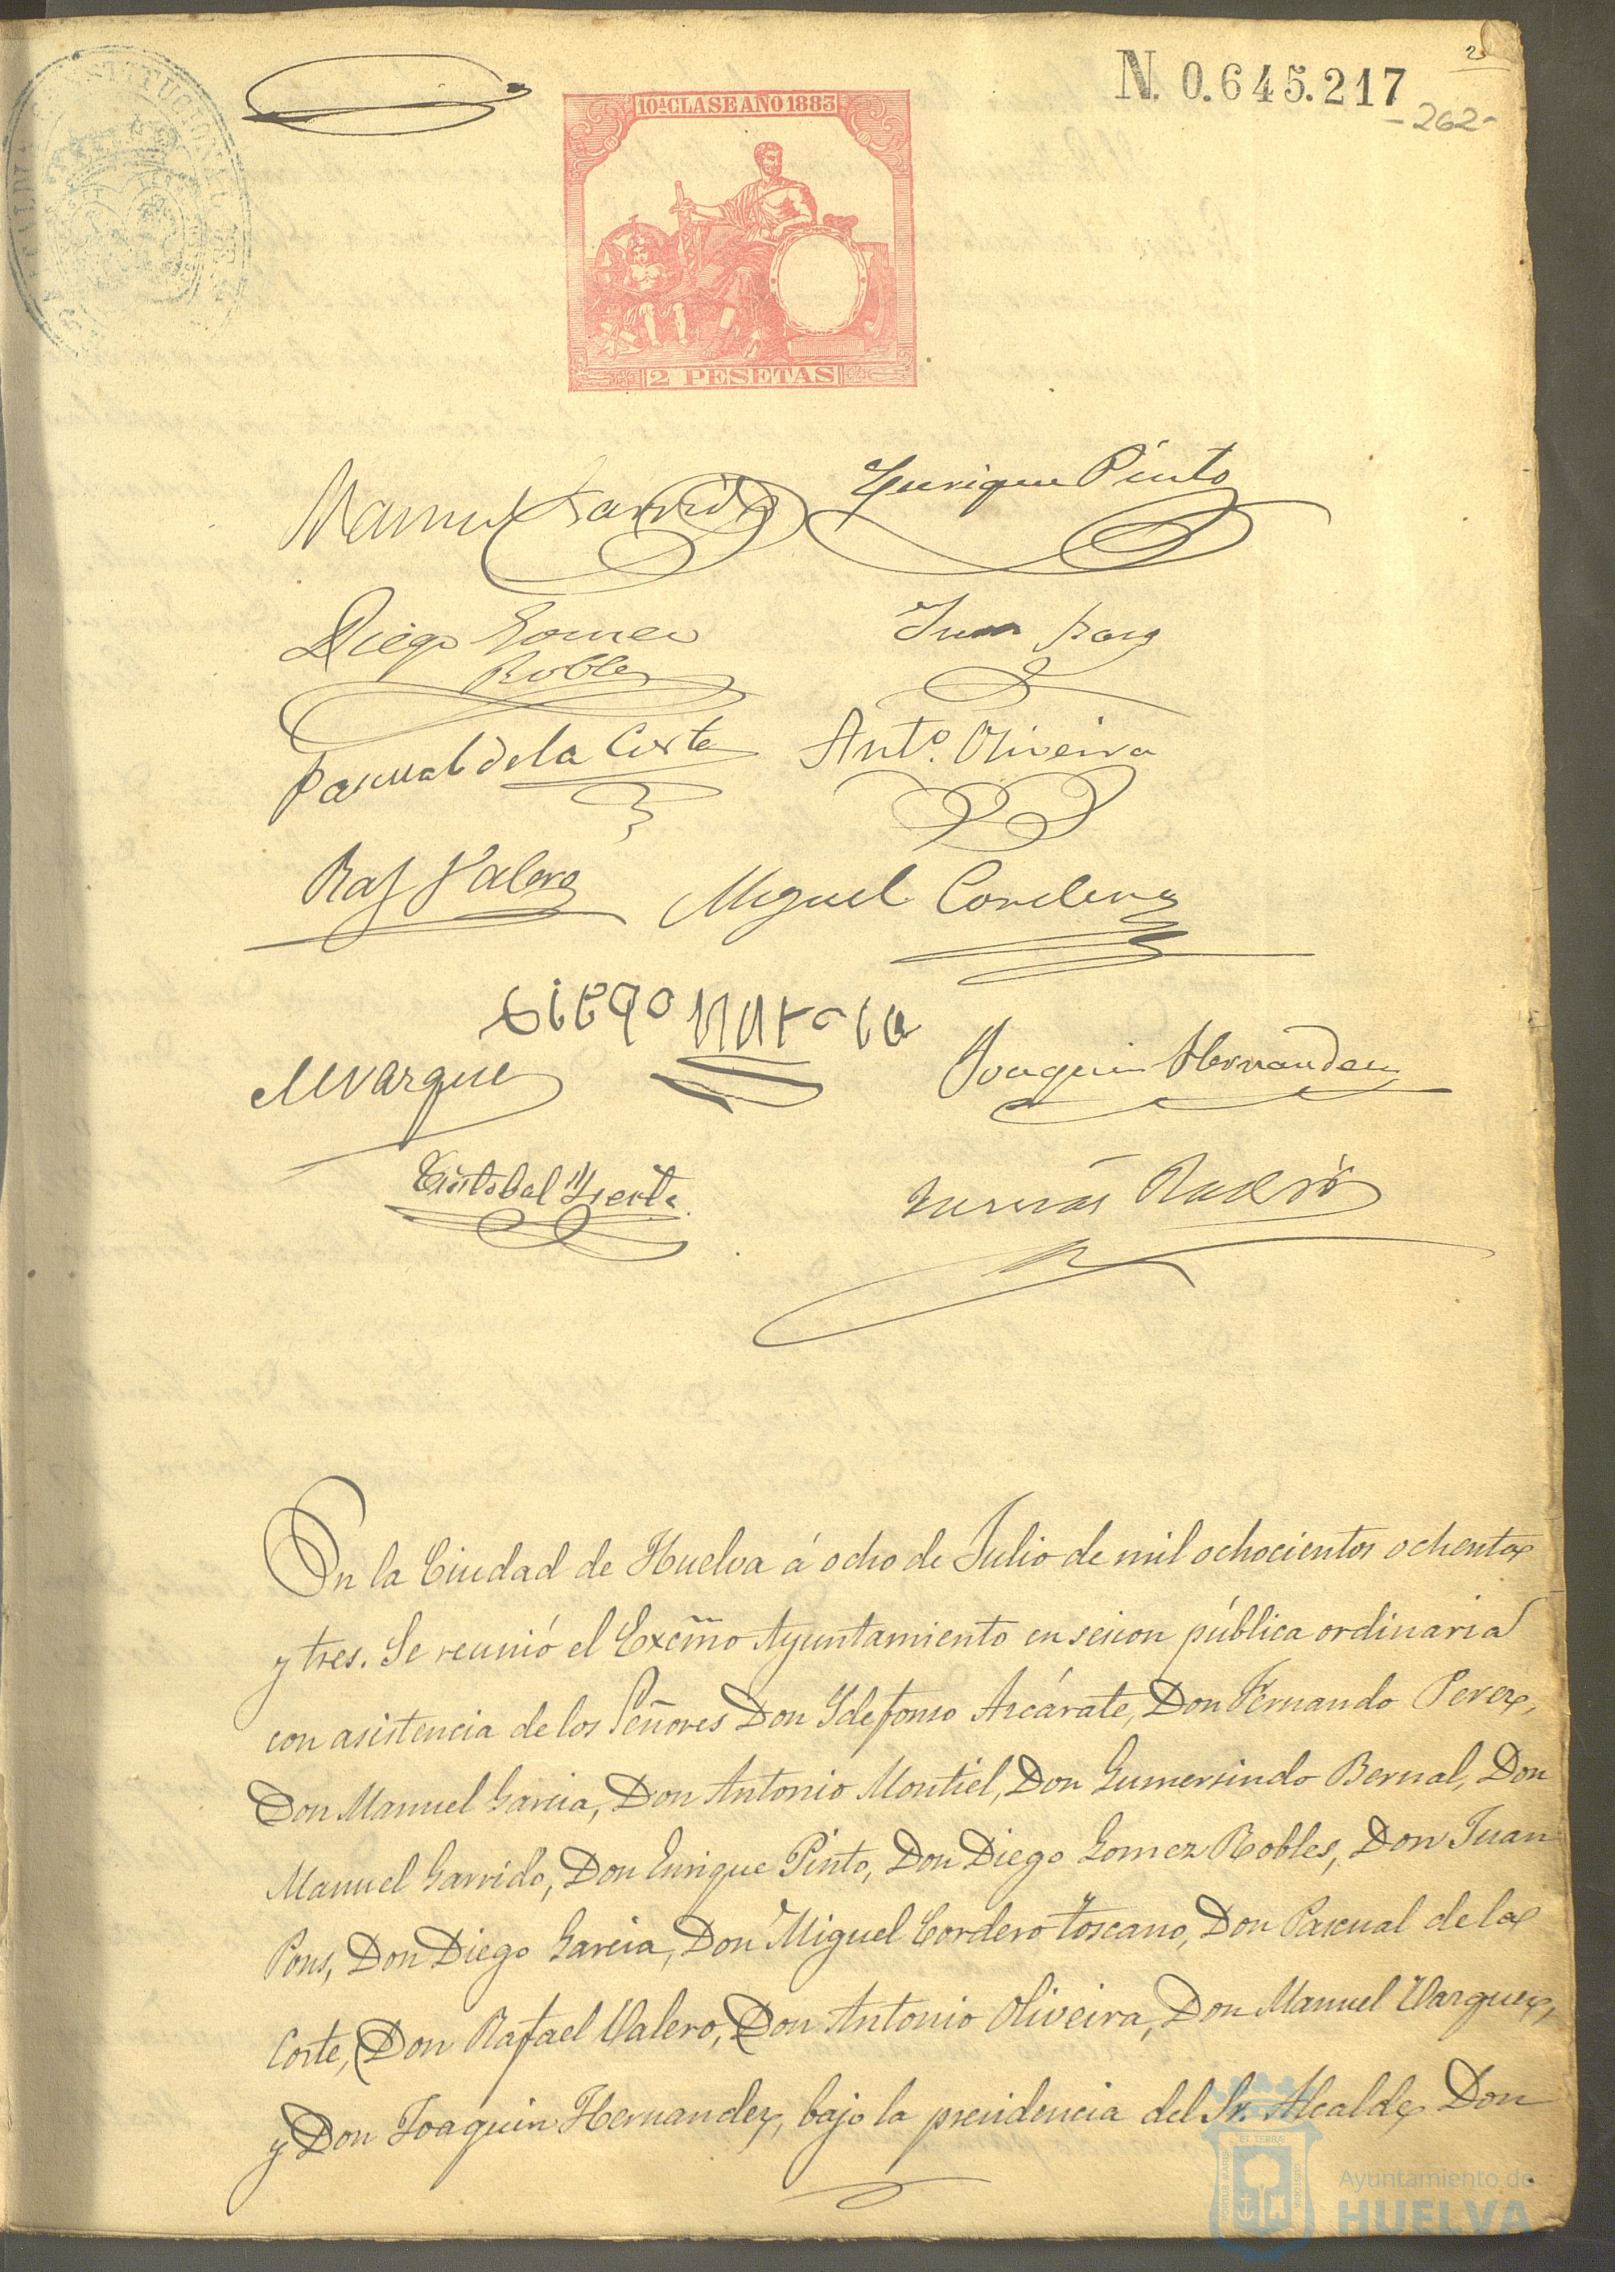 N. 0.645.217
- 262 -
10ª CLASE AÑO 1883
2 PESETAS
Manuel Garrido Enrique Pinto
Diego Gomez Juan Pons
Robles
Pascual de la Corte Antº. Oliveira
Raf Valero Miguel Cordero
Diego Garcia
MVarguez Joaquin Hernandez
Cristobal
En la Ciudad de Huelva á ocho de Julio de mil ochocientos ochenta
y tres. Se reunió el Excmo Ayuntamiento en sesion pública ordinaria
con asistencia de los Señores Don Ildefonso Azcárate, Don Fernando Perez,
Don Manuel Garcia, Don Antonio Montiel, Don Gumersindo Bernal, Don
Manuel Garrido, Don Enrique Pinto, Don Diego Gomez Robles, Don Juan
Pons, Don Diego Garcia, Don Miguel Cordero Toscano, Don Pascual de la
Corte, Don Rafael Valero, Don Antonio Oliveira, Don Manuel Varguez,
y Don Joaquin Hernandez, bajo la presidencia del Sr. Alcalde Don
Ayuntamiento de
HUELVA